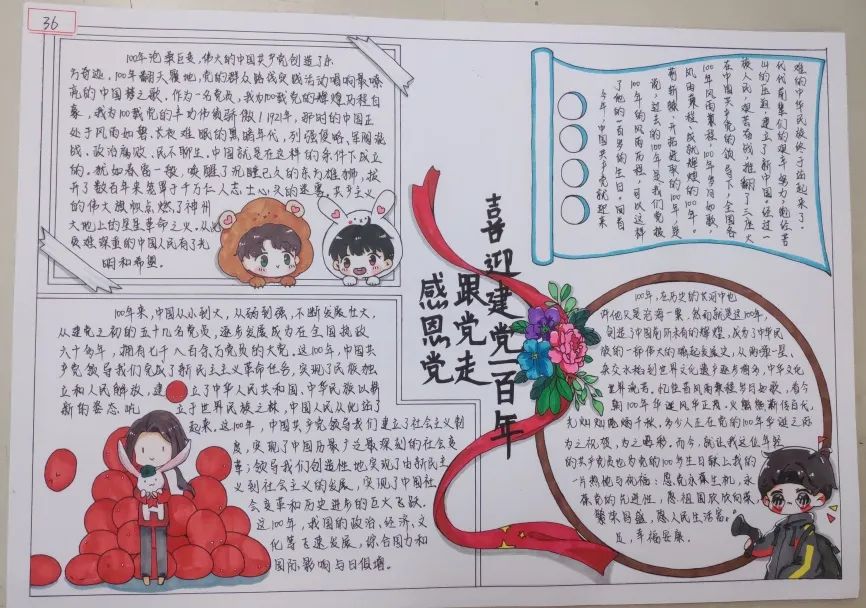 36
100年沧桑巨变,伟大的中国共产党创造了东
方奇迹。100年翻天覆地,党的群众路线实践活动唱响最嘹
亮的中国梦之歌。作为一名党员,我为100载党的辉煌历程自
豪,我为100载党的丰功伟绩骄傲!1921年,那时的中国正
处于风雨如磐、长夜难眠的黑暗年代,列强侵略、军阀混
战、政治腐败、民不聊生。中国就是在这样的条件下成立
的。犹如春雷一般,唤醒了沉睡已久的东方雄狮,拨
开了数百年来笼罩于千万仁人志士心头的迷雾。共产主义
的伟大旗帜点燃了神州
大地上的星星革命之火,从此
灾难深重的中国人民有了光
明和希望。
100年来,中国从小到大,从弱到强,不断发展壮大,
从建党之初的五十几名党员,逐步发展成为在全国执政
六十多年,拥有七千八百余万党员的大党。这100年,中国共
产党领导我们完成了新民主主义革命任务,实现了民族独
立和人民解放,建立了中华人民共和国,中华民族以崭
新的姿态屹立于世界民族之林,中国人民从此站了
起来。这100年,中国共产党领导我们建立了社会主义制
度,实现了中国历最广泛最深刻的社会变
革;领导我们创造性地实现了由新民主
义到社会主义的发展,实现了中国社
会变革和历史进步的巨大飞跃。
这100年,我国的政治、经济、文
化等飞速发展,综合国力和
国际影响与日俱增。
喜迎建党一百年
跟党走
感恩党
难的中华民族终于站起来了。
代代前辈们的艰辛努力,饱经苦
山的压迫,建立了新中国。经过一
族人民艰苦奋战,推翻了三座大
在中国共产党的领导下,全国各
100年风雨兼程,100年岁月如歌,
风雨兼程、成就辉煌的100年。
荆斩棘、开拓进取的100年,是
说,过去的100年是我们党披
100年的风雨历程,可以这样
了他的一百岁的生日。回首
今年,中国共产党就迎来
100年,在历史的长河中也
许仅又是沧海一粟,然而就是这100年,
创造了中国前所未有的辉煌,成为了中华民
族的一部伟大的崛起发展史,从两弹一星、
杂交水稻到世界文化遗产逐步增多,中华文化
世界流芳。忆往昔风雨兼程岁月如歌,看今
朝100年华诞风华正茂。火炬熊熊传百代,
光灿灿照千秋,多少人正在党的100年华诞之际
为之祝贺,为之喝彩,而今,就让我这位年轻
的共产党员也为党的100岁生日献上我的
一片热忱与祝福:愿党永葆生机,永
葆党的先进性,愿祖国欣欣向荣、
繁荣昌盛,愿人民生活富
足,幸福安康。